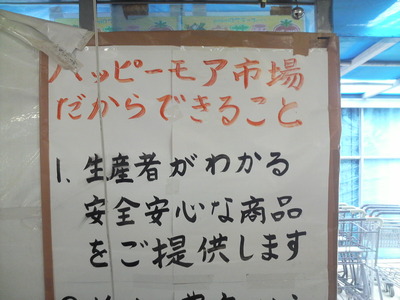 ハッピーモア市場
だからできること
1. 生産者がわかる
安全安心な商品
をご提供します